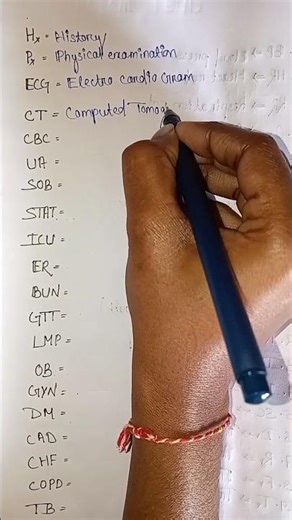 Hx = History
Px = Physical examination
ECG = Electro cardio Gram
CT = Computed Tomog
CBC =
UA =
SOB =
STAT =
ICU =
ER =
BUN =
GTT =
LMP =
OB =
GYN =
DM =
CAD =
CHF =
COPD =
TB =